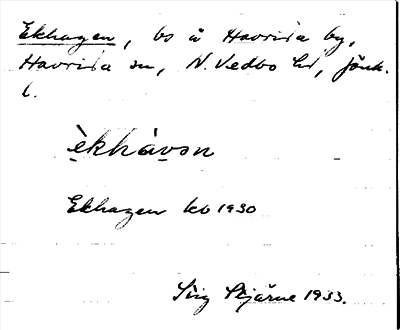 Ekhagen, bs å Haurida by,
Haurida sn, N. Vedbo hd, Jönk.
l.
è̱khàvən
Ekhagen kb 1930
Stig Stjärne 1933.